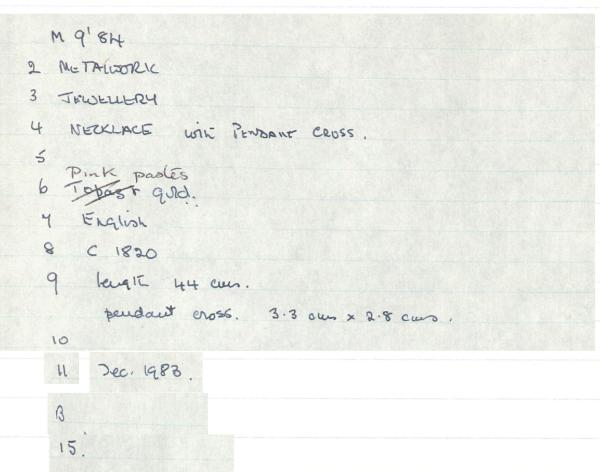 M 9'84
2 METALWORK
3 JEWELLERY
4 NECKLACE with PENDANT CROSS.
5
Pink pastes
6 Topas & gold.
7 English
8 C 1820
9 length 44 cms.
pendant cross. 3.3 cms x 2.8 cms.
10
11 Dec. 1983.
B
15.